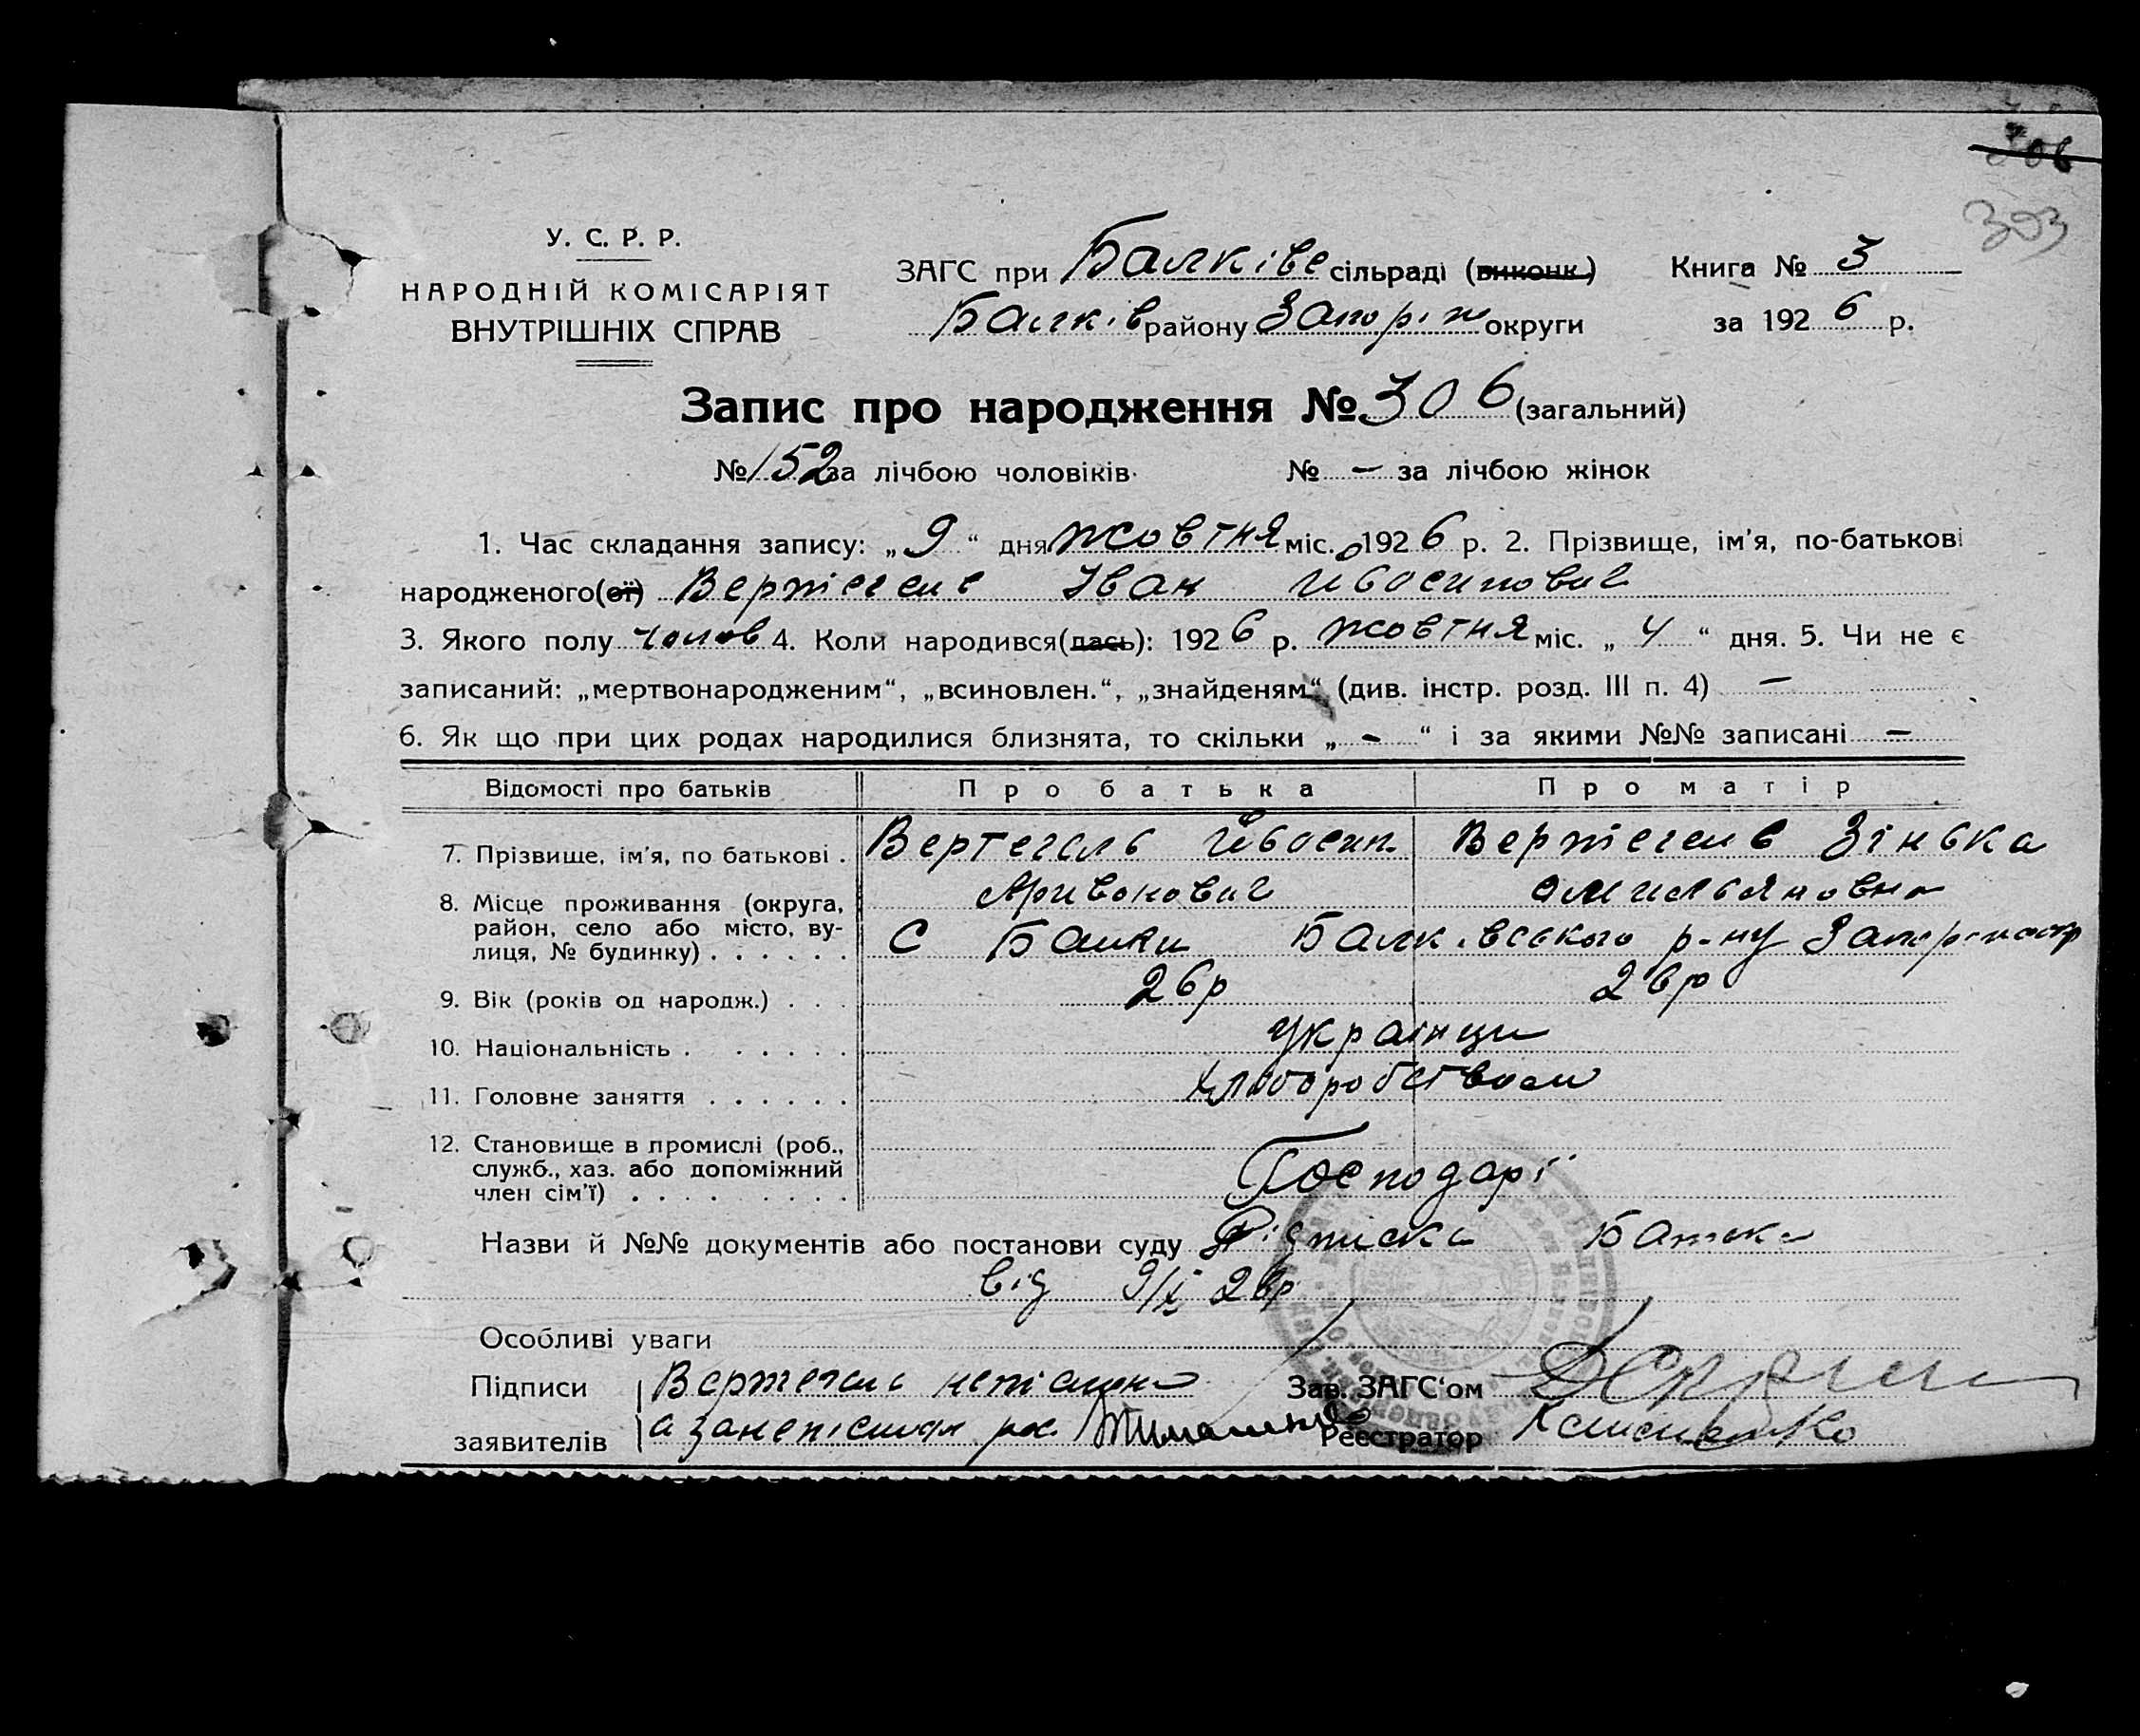 306
303
У. С. Р. Р.
НАРОДНІЙ КОМІСАРІЯТ
ВНУТРІШНІХ СПРАВ
ЗАГС при Балківс сільраді (виконк.)
Балків району Запоріж округи
Книга № 3
за 1926 р.
Запис про народження № 306 (загальний)
№ 152 за лічбою чоловіків № – за лічбою жінок
1. Час складання запису: „9“ дня жовтня міс. 1926 р. 2. Прізвище, ім'я, по-батькові
народженого(ої) Вертегель Іван Йвосипович
3. Якого полу чолов 4. Коли народився(лась): 1926 р. жовтня міс. „4“ дня. 5. Чи не є
записаний: „мертвонародженим“, „всиновлен.“, „знайденям“ (див. інстр. розд. III п. 4) –
6. Як що при цих родах народилися близнята, то скільки „–“ і за якими №№ записані –
Відомості про батьків Про батька Про матір
7. Прізвище, ім'я, по батькові . Вертегель Йвосип Вертегель Зінька
Аривонович Омильяновна
8. Місце проживання (округа,
район, село або місто, ву-
лиця, № будинку) . . . . . . С Балки Балківського р-ну
9. Вік (років од народж.) . . . 26р 26р
10. Національність . . . . . . українци
11. Головне заняття . . . . . . хліборобством
12. Становище в промислі (роб.,
служб., хаз. або допоміжний
член сім'ї) . . . . . . . . . Господарі
Назви й №№ документів або постанови суду Підписка Батька
від 9/X 26р
Особливі уваги
Підписи Вертегель
заявителів а
Зав. ЗАГС'ом
Реєстратор